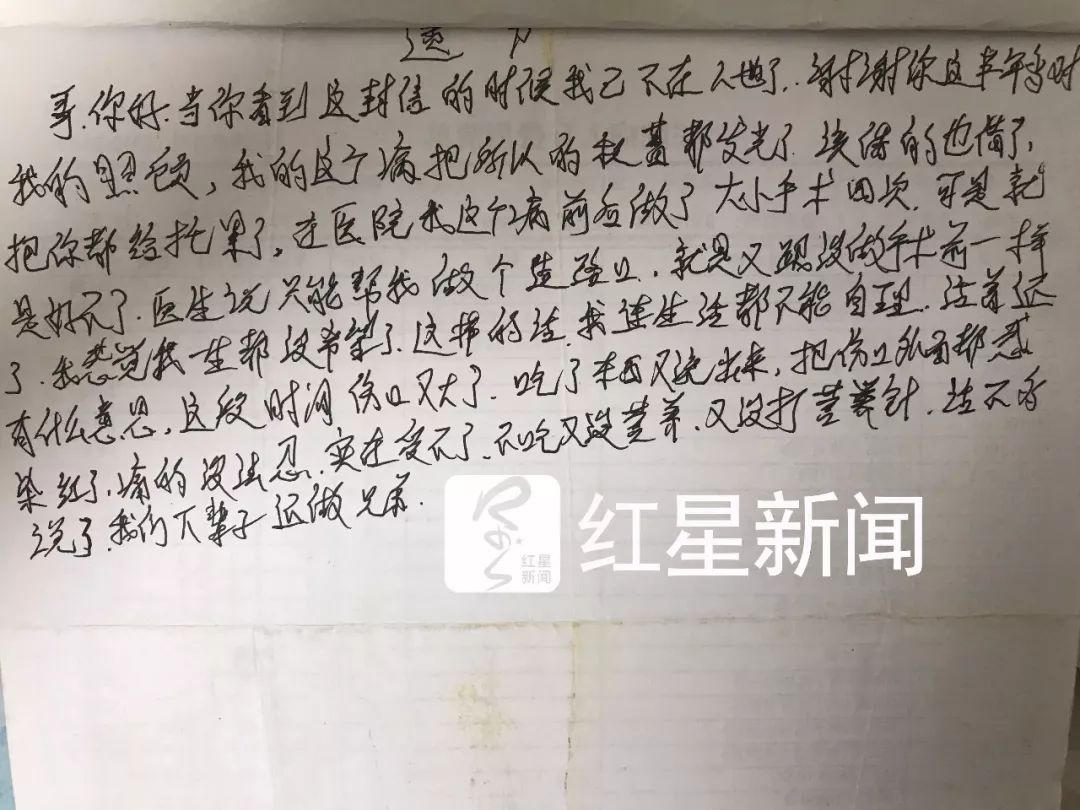 遗
哥.你好.当你看到这封信的时候我已不在人世了.谢谢你这半年当时
我的照顾,我的这个病把所以的积蓄都发光了.该借的也借了,
把你都给托累了,在医院我这个病前后做了大小手术四次.可是就
是好不了.医生说只能帮我做个造瘘口.就是又跟没做手术前一样
了.我感觉我一生都没希望了.这样的话.我连生活都不能自理.活着还
有什么意思,这段时间伤口又大了.吃了东西又流出来,把伤口外面都感
染红了,痛的没法忍.实在受不了.不吃又没营养.又没打营养针.话不多
说了.我们下辈子还做兄弟.
红星新闻
红星
新闻